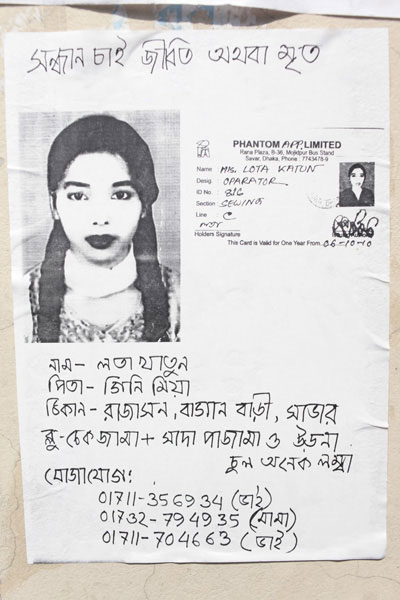 সন্ধান চাই জীবিত অথবা মৃত
PHANTOM APP. LIMITED
Rana Plaza, B-36, Mojidpur Bus Stand
Savar, Dhaka, Phone : 7743478-9
Name Mis. LOTA KATUN
Desig. OPARATOR
ID No. 816
Section SEWING
Line C
Holders Signature
This Card is Valid for One Year From. 06-10-10
নাম - লতা খাতুন
পিতা - গিনি মিয়া
ঠিকান - রাজাসন, বাগান বাড়ী, সাভার
ব্লু - চেক জামা + সাদা পাজামা ও উড়না
চুল অনেক লম্বা
যোগাযোগ:
01711-356934 (ভাই)
01732-794935 (মামা)
01711-704663 (ভাই)